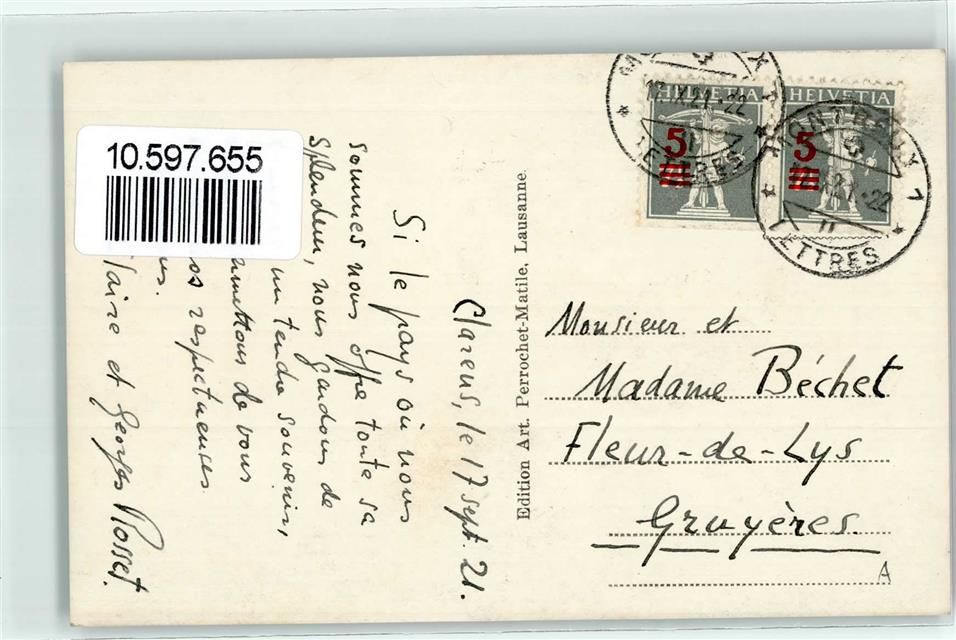 10.597.655
Clarens, le 17 sept. 21.
Si le pays où nous
sommes nous offre toute sa
splendeur, nous gardons de
un tendre souvenir,
mettons de vous
os respectueuses
es.
laire et Georges Rosset.
Edition Art. Perrochet-Matile, Lausanne.
HELVETIA HELVETIA
5 5
17.IX.21.-22
LETTRES
MONTREUX 1
LETTRES
Monsieur et
Madame Béchet
Fleur-de-Lys
Gruyères.
A